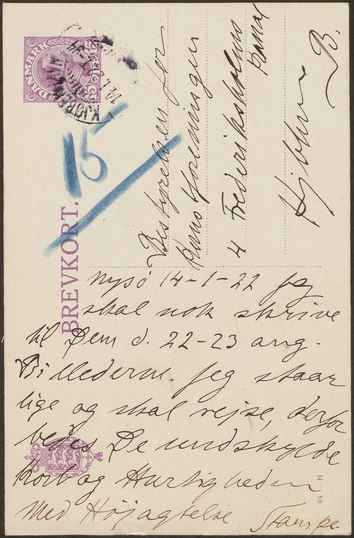 DANMARK
KJØBENHAVN
15
BREVKORT.
Bestyrelsen for
Kunstforeningen
4 Frederiksholms
Kanal
Kjøbhvn
B.
Nysø 14-1-22 Jeg
skal nok skrive
til Dem d. 22-23 ang.
Billederne. Jeg staar
lige og skal rejse, derfor
bedes De undskylde
Kort og Hurtigheden
Med Højagtelse